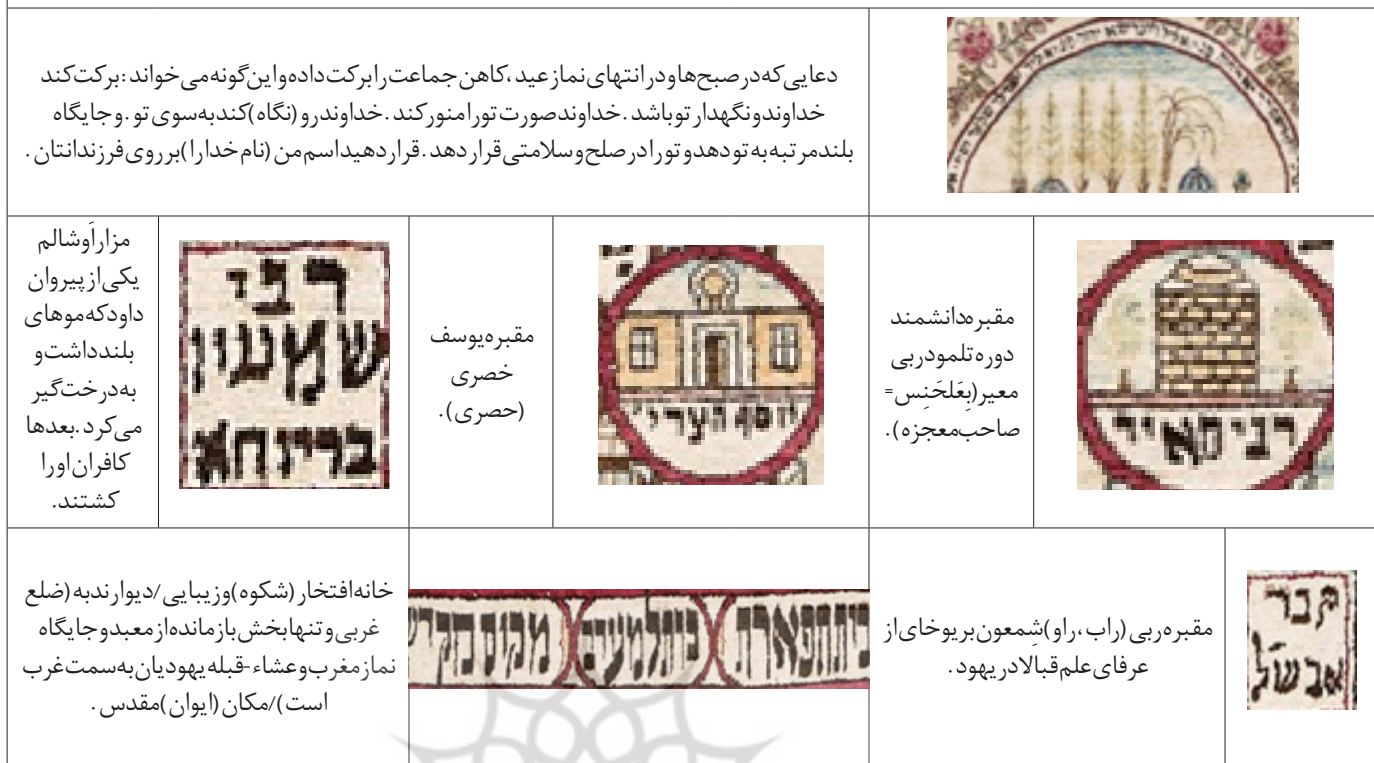 دعایی که در صبح‌ها و در انتهای نماز عید، کاهن جماعت را برکت داده و این گونه می خواند: برکت کند
خداوند و نگهدار تو باشد. خداوند صورت تو را منور کند. خداوند رو (نگاه) کند به سوی تو. و جایگاه
بلندمرتبه به تو دهد و تو را در صلح و سلامتی قرار دهد. قرار دهید اسم من (نام خدا را) بر روی فرزندانتان.
רבי מאיר
مقبره دانشمند
دوره تلمود ربی
معیر (بِعَلحَنِس=
صاحب معجزه).
יוסף הצרי'
مقبره یوسف
خصری
(حصری).
רבי
שמעון
בר יוחא
مزار اَوشالم
یکی از پیروان
داود که موهای
بلند داشت و
به درخت گیر
می کرد. بعدها
کافران او را
کشتند.
קבר
אבשל
مقبره ربی (راب، راو) شِمعون بریوخای از
عرفای علم قبالا در یهود.
בית תפארת כותל מערבי מקום מקדש
خانه افتخار (شکوه) و زیبایی/ دیوار ندبه (ضلع
غربی و تنها بخش بازمانده از معبد و جایگاه
نماز مغرب و عشاء- قبله یهودیان به سمت غرب
است)/ مکان (ایوان) مقدس.